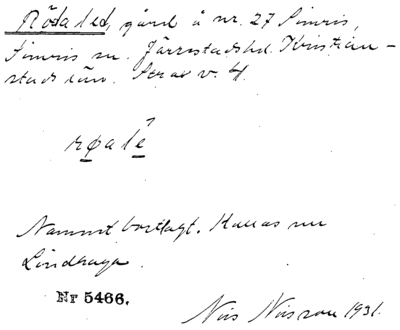 Röda led, gård å nr. 27 Simris,
Simris sn. Järrestads hd. Kristian-
stads län. Strax v. 4.
røalê
Namnet bortlagt. Kallas nu
Lindhaga.
Nr 5466.
Nils Nilsson 1931.